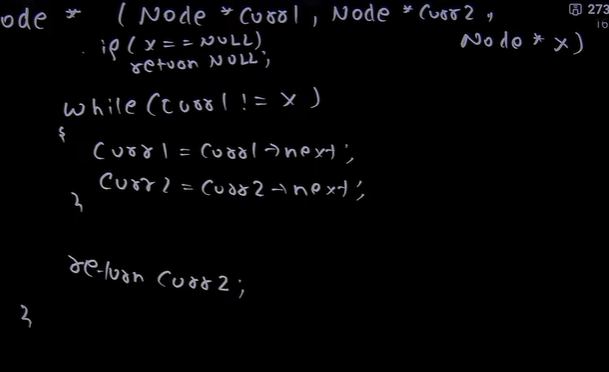 ode * (Node *Curr1, Node *Curr2,
Node * x)
if (x == NULL)
return NULL;
while (curr1 != x)
{
Curr1 = Curr1->next;
Curr2 = Curr2->next;
}
return Curr2;
}
273